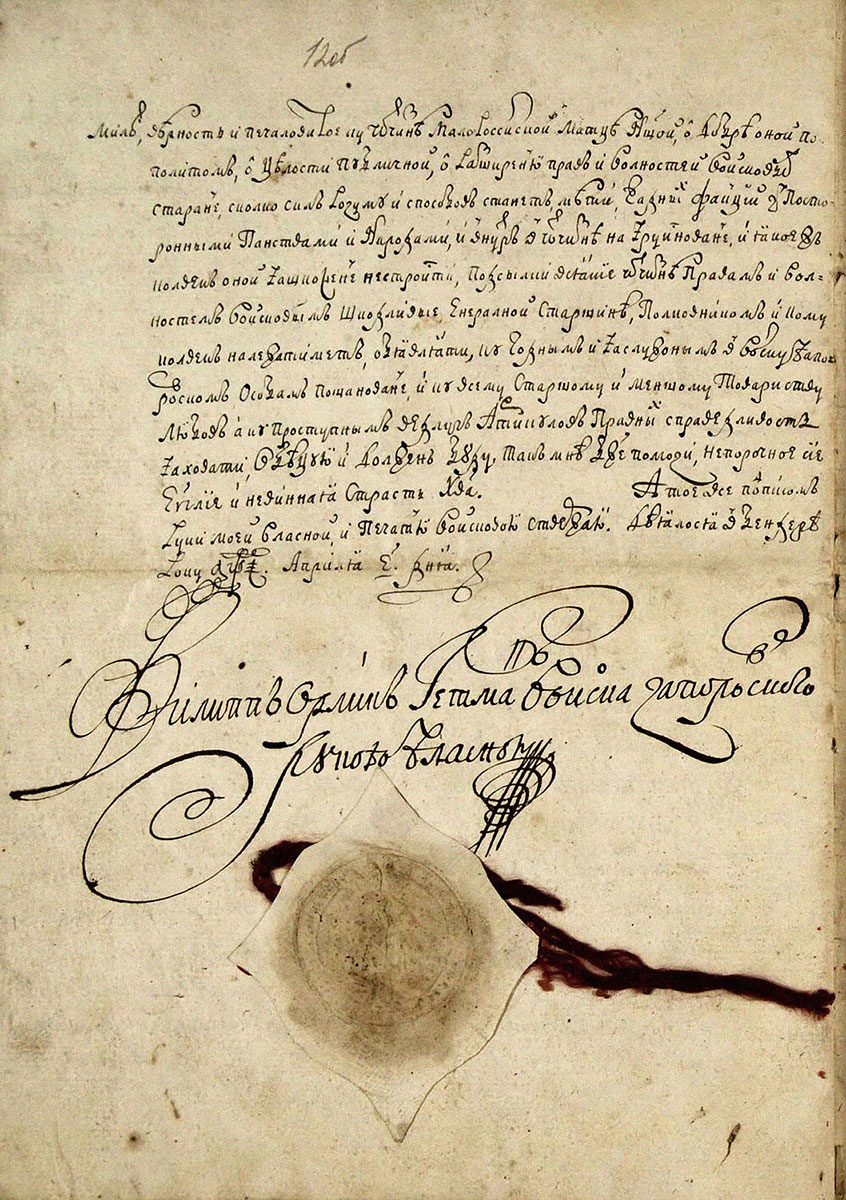 милъ, вѣрность и печаловитое ку отчизнѣ Малороссійской Матцѣ нашой, о добрѣ оной по-
политомъ, о цѣлости публичной, о разширеню правъ и волностей войсковыхъ
старане, сколко силъ розуму и способовъ станетъ, мѣти, жадныхъ факций з посто-
ронными Панствами и народами, и внутръ в отчизнѣ на зруйноване, и якоежъ
колвекъ оной зашкожене нестроити, подсылки всякіе отчизнѣ Правамъ и вол-
ностемъ войсковымъ шкодливые, Енералной Старшинѣ, Полковникомъ и кому
колвекъ належатиметъ, объявляти, ку годнымъ и заслужонымъ в войску запо-
рожскомъ Особамъ пошановане, и ку всему Старшому и меншому Товариству
Любовъ а ку проступнымъ ведлугъ Артикуловъ Правныхъ справедливость
заховати, обѣцую и долженъ буду, такъ мнѣ Боже поможи, непорочное сіе
Еѵгліе и невинная Страсть Хва. А тое все подписомъ
руки моей власной, и Печатю войсковою ствержаю. Дѣялося в Бендерѣ
Року ҂аѱі. Априля е҃. дня.
Филиппъ Орликъ Гетманъ Войска запорозского
рукою власною